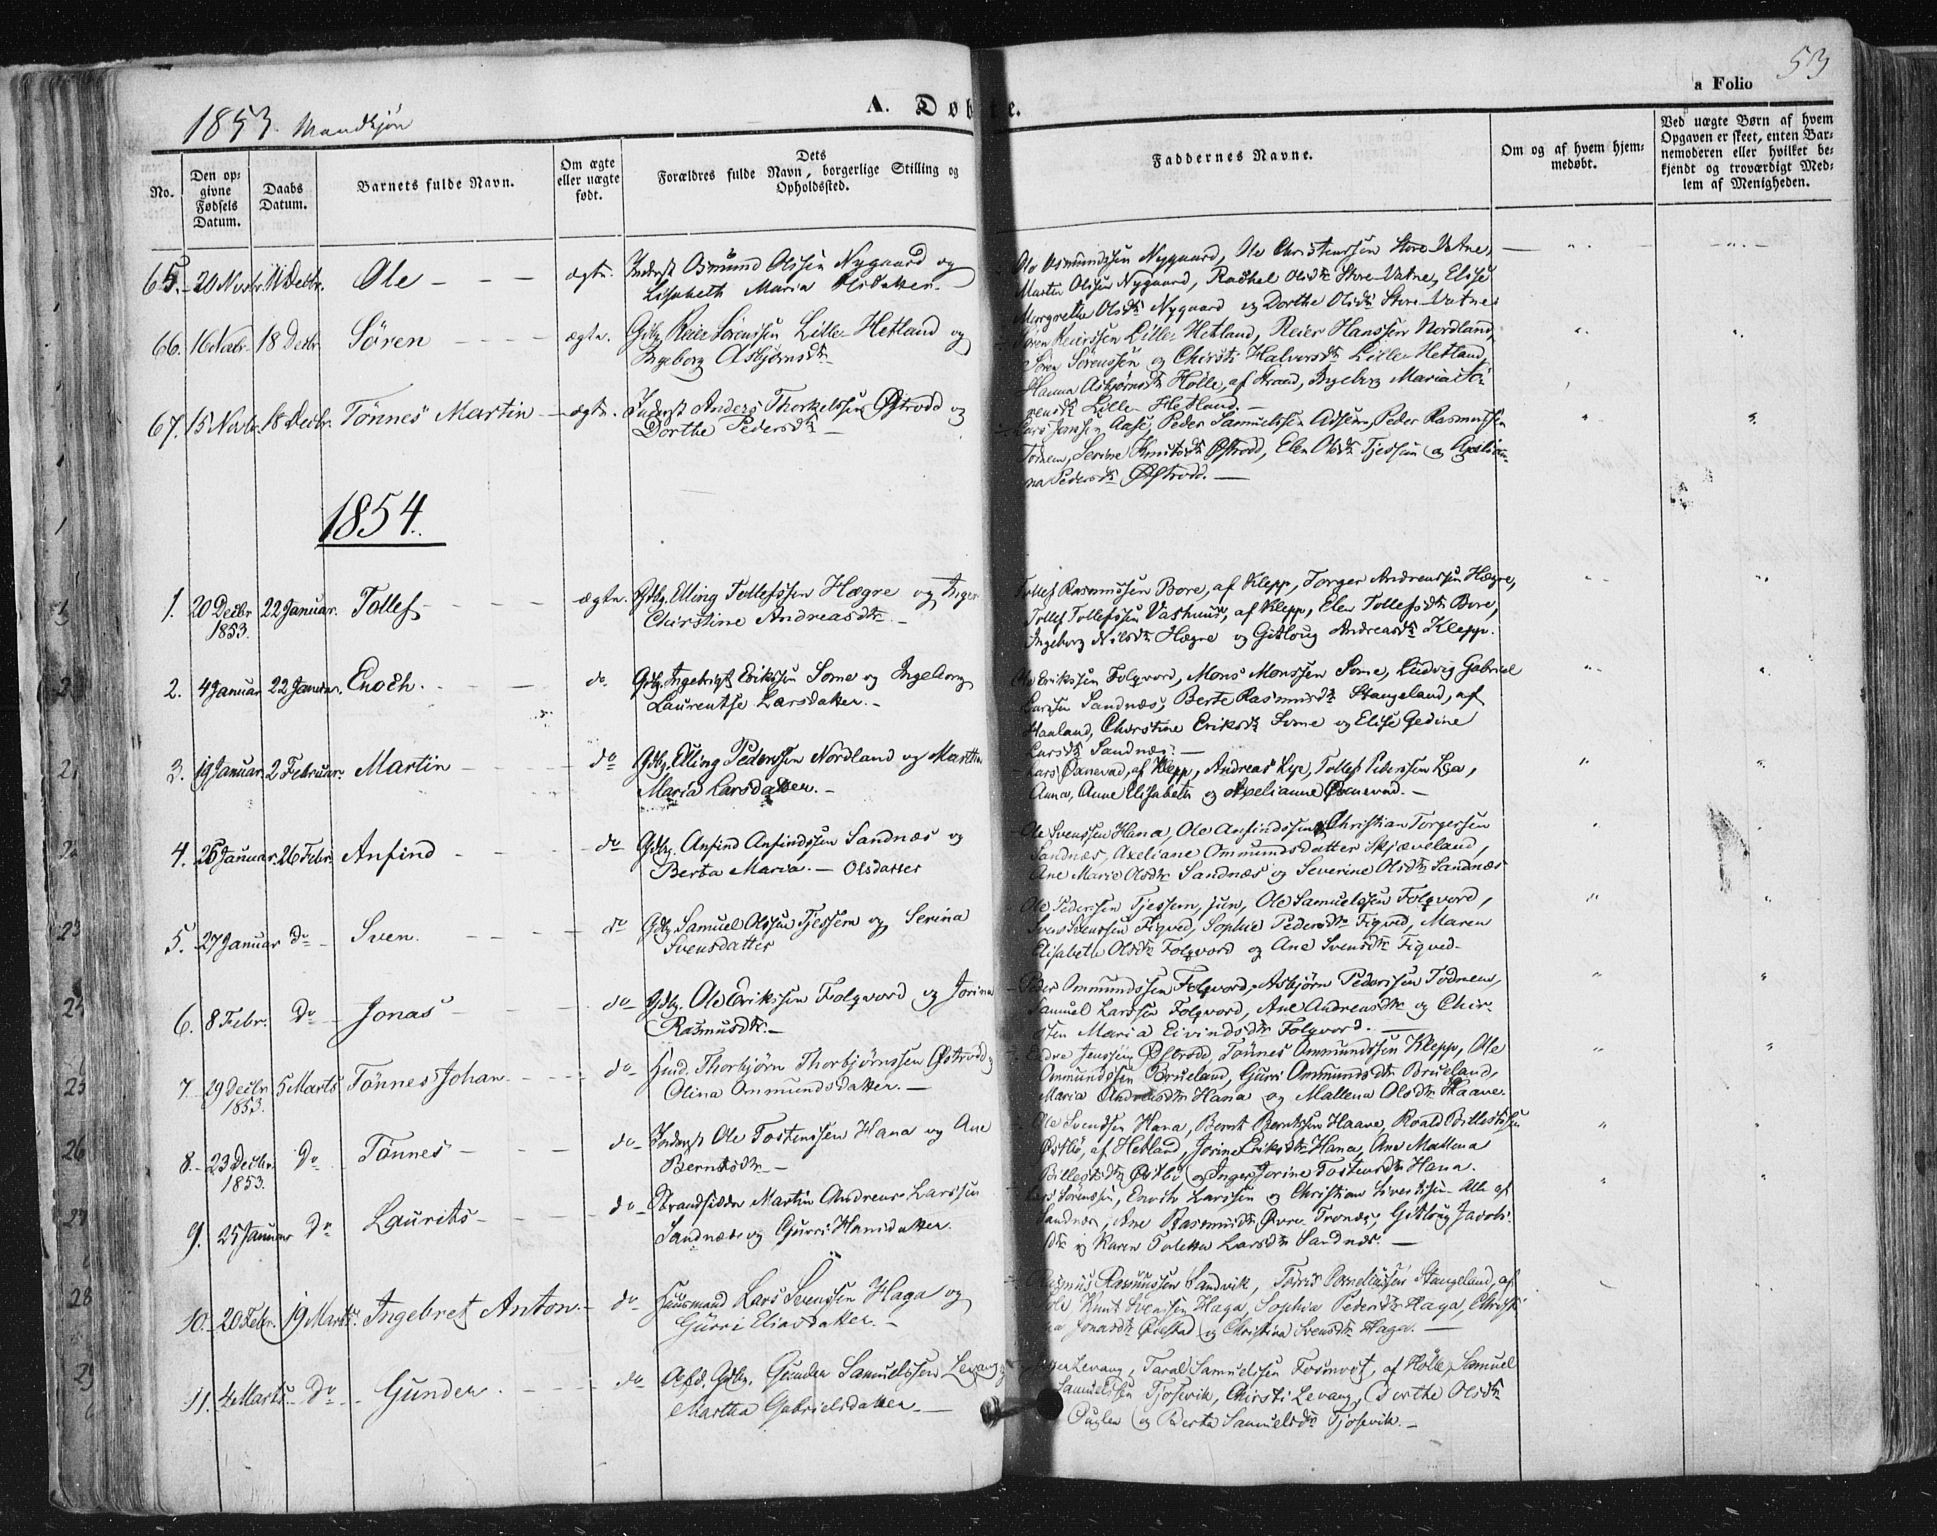 53
a Folio
1853. Mandkjøn
A. Døbte.
No.
Den op-
givne
Fødsels
Datum.
Daabs
Datum.
Barnets fulde Navn.
Om ægte
eller uægte
født.
Dets
Forældres fulde Navn, borgerlige Stilling og
Opholdssted.
Faddernes Navne.
Om og af hvem hjem-
medøbt.
Ved uægte Børn af hvem
Opgaven er skeet, enten Bar-
nemoderen eller hvilket be-
kjendt og troværdigt Med-
lem af Menigheden.
65. 20 Novbr. 11 Decbr. Ole ægte. Inderst Osmund Olssen Nygaard og
Lisabeth Maria Olsdatter.
Ole Osmundssen Nygaard, Ole Christenssen Store-Vatne,
Martin Olssen Nygaard, Rachel Olsdtr Store-Vatne, Elise
Margrethe Olsdtr Nygaard og Dorthe Olsdtr Store-Vatne
66. 16 Novbr. 18 Decbr. Sören ægte. Gdbr. Reier Sörenssen Lille-Hetland og
Ingeborg Asbjørnsdtr
Sören Reierssen Lille-Hetland, Reier Hanssen Nordland,
Sören Sörenssen og Chirsti Halvorsdtr Lille-Hetland,
Hanna Asbjørnsdtr Hölle, af Strand, Ingeborg Maria Sö-
rensdtr Lille-Hetland.
67. 15 Novbr. 18 Decbr. Tönnes Martin ægte. Inderst Anders Thorkelssen Østrodd og
Dorthe Pedersdtr
Lars Jonssen Aase, Peder Samuelssen Adsen, Peder Rasmussen
Todnem, Serine Knutsdtr Østrodd, Elen Olsdtr Tjessem og Axelian-
na Pedersdtr Østrodd.
1854.
1. 20 Decbr. 1853. 22 Januar. Tollef ægte. Gdbr. Elling Tollefssen Hægre og Inger
Christine Andreasdtr.
Tollef Rasmussen Bore, af Klepp, Torger Andreassen Hægre,
Tollef Tollefssen Vashuus, af Klepp, Elen Tollefsdtr Bore,
Ingeborg Nilsdtr Hægre og Gitloug Andreasdtr Klepp.
2. 4 Januar 22 Januar. Enoch. do. Gdbr. Ingebrigt Erikssen Some og Ingeborg
Laurentse Larsdatter.
Ole Erikssen Folqvord, Mons Monssen Some, Ludvig Gabriel
Larssen Sandnæs, Berte Rasmusdtr Stangeland, af
Haaland, Christine Eriksdtr Some og Elise Gedine
Larsdtr Sandnæs.
3. 19 Januar. 2 Februar. Martin do Gdbr. Elling Pederssen Nordland og Martha
Maria Larsdatter.
Lars Øxnevad, af Klepp, Andreas Lye, Tollef Pederssen Lea,
Anna, Anne Elisabeth og Axelianne Øxnevad.
4. 25 Januar. 26 Febr. Anfind do Gdbr. Anfind Anfindssen Sandnæs og
Berta Maria. Olsdatter
Ole Svenssen Hana, Ole Anfindssen og Christian Torgersen
Sandnæs, Axeliane Ommundsdatter Skjæveland,
Ane Marie Olsdtr Sandnæs og Severine Olsdtr Sandnæs
5. 27 Januar do Sven. do Gdbr. Samuel Olssen Tjessem og Serina
Svensdatter
Ole Pederssen Tjessem, jun, Ole Samuelssen Folqvord,
Sven Svenssen Figved, Sophie Pedersdtr Figved, Maren
Elisabeth Olsdtr Folqvord og Ane Svensdtr Figved.
6. 8 Febr. do Jonas do Gdbr. Ole Erikssen Folqvord og Jorina
Rasmusdtr.
Peder Ommundssen Folqvord, Asbjörn Pederssen Todnem,
Samuel Larssen Folqvord, Ane Andreasdtr og Chir-
sten Maria Eivindsdtr Folqvord.
7. 29 Decbr. 1853. 5 Marts Tönnes Johan. do Huusd. Thorbjörn Thorbjörnssen Østrodd og
Olina Ommundsdatter.
Endre Jenssen Østrodd, Tönnes Ommundssen Klepp, Ole
Ommundssen Brueland, Gurri Ommundsdtr Brueland,
Maria Andreasdtr Hana og Mallena Olsdtr Haave.
8. 23 Decbr. 1853. do Tönnes do Inderst Ole Tostenssen Hana og Ane
Berntsdtr
Ole Svendsen Hana, Bernt Berntssen Haave, Roald Billestssen
Østbø, af Hetland, Jorine Eriksdtr Hana, Ane Mallena
Billestsdtr Østbø og Inger Jorine Tostensdtr Hana.
9. 25 Januar do Laurits do Strandsidder Martin Andreas Larssen
Sandnæs og Gurri Hansdatter.
Lars Sörenssen, Enoch Larssen og Christian Sivertssen. Alle af
Sandnæs, Ane Rasmusdtr Øvre-Tronæs, Gitloug Jacobs-
dtr og Karen Tolettea Larsdtr Sandnæs.
10. 20 Febr. 19 Marts. Ingebret Anton. do Huusmand Lars Svenssen Haga og
Gurri Eliasdatter.
Rasmus Rasmussen Sandvik, Törris Corneliussen Stangeland, af
Knut Svenssen Haga, Sophia Pedersdtr Haga, Christi-
na Jonasdtr Ødestad og Christina Svensdtr Haga.
11. 4 Marts do Gunder. do Afd. Gdbr. Gunder Samuelssen Levang og
Martha Gabrielsdatter.
Levang, Taral Samuelssen Fosnvot, af Hölle, Samuel
Samuelssen Tjosevik, Chirsti Levang, Dorthe Olsdtr
og Berta Samuelsdtr Tjosevik.